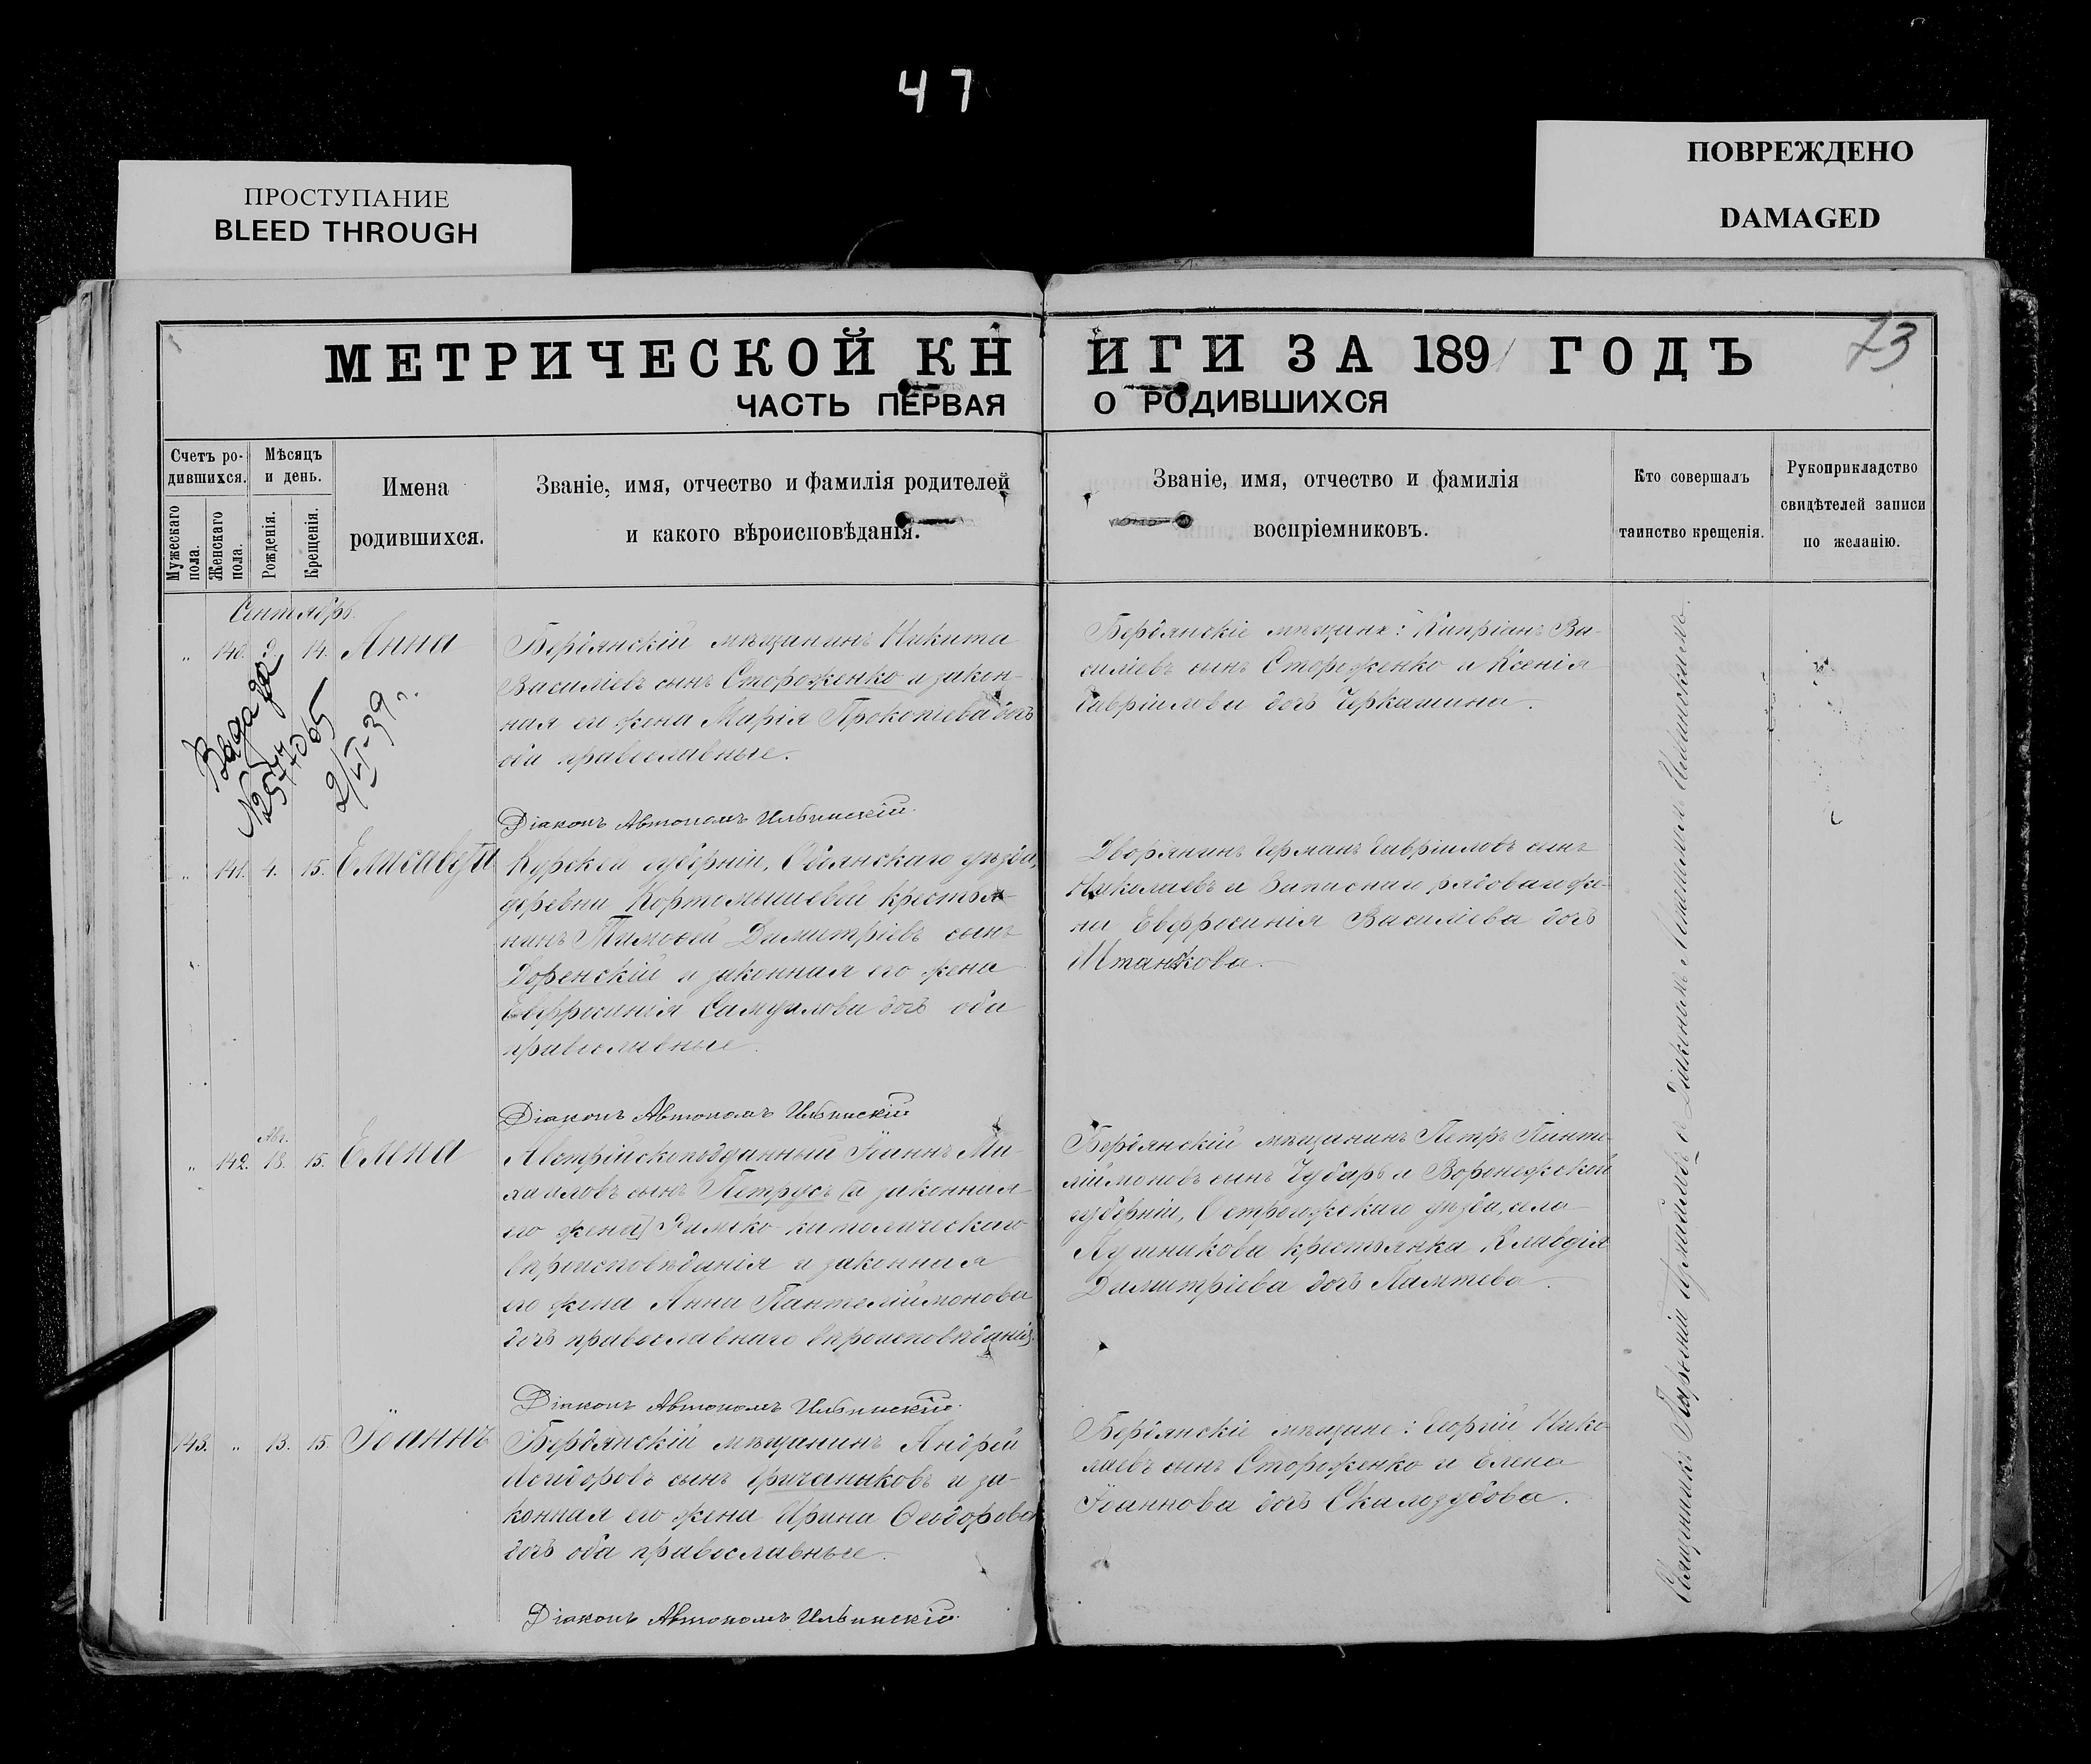 47
ПРОСТУПАНИЕ
BLEED THROUGH
ПОВРЕЖДЕНО
DAMAGED
73
МЕТРИЧЕСКОЙ КНИГИ ЗА 1891 ГОДЪ
ЧАСТЬ ПЕРВАЯ О РОДИВШИХСЯ
Счетъ ро-
дившихся.
Мужескаго пола.
Женскаго пола.
Мѣсяцъ
и день.
Рожденія.
Крещенія.
Имена
родившихся.
Званіе, имя, отчество и фамилія родителей
и какого вѣроисповѣданія.
Званіе, имя, отчество и фамилія
воспріемниковъ.
Кто совершалъ
таинство крещенія.
Рукоприкладство
свидѣтелей записи
по желанію.
Сентябрь.
" 140. 9. 14. Анна
Бердянскій мѣщанинъ Никита
Василіевъ сынъ Стороженко и закон-
ная его жена Марія Прокопіева дочь
оба православные.
Діаконъ Автономъ Ильинскій.
Бердянскіе мѣщане: Кипріанъ Ва-
силіевъ сынъ Стороженко и Ксенія
Гавріилова дочь Черкашина.
2/VI-39 г.
" 141. 4. 15. Елисавета
Курской губерніи, Обоянскаго уѣзда,
деревни крестья-
нинъ Тимоѳей Димитріевъ сынъ
Лоренскій и законная его жена
Евфросинія Самуилова дочь оба
православные.
Діаконъ Автономъ Ильинскій
Дворянинъ Германъ Гавріиловъ сынъ
Николаевъ и Запаснаго рядоваго же-
на Евфросинія Василіева дочь
" 142. Авг. 18. 15. Елена
Австрійскоподданный Іоаннъ Ми-
хаиловъ сынъ Петрусъ [и законная
его жена] Римско-католическаго
вѣроисповѣданія и законная
его жена Анна Пантелеймонова
дочь православнаго вѣроисповѣданія.
Діаконъ Автономъ Ильинскій.
Бердянскій мѣщанинъ Петръ Панте-
леймоновъ сынъ Чубарь и Воронежской
губерніи, Острогожскаго уѣзда, села
крестьянка Клавдія
Димитріева дочь
143. " 13. 15. Іоаннъ
Бердянскій мѣщанинъ Андрей
Исидоровъ сынъ и за-
конная его жена Ирина Ѳеодорова
дочь оба православные.
Діаконъ Автономъ Ильинскій.
Бердянскіе мѣщане: Георгій Нико-
лаевъ сынъ Стороженко и Елена
Іоаннова дочь Скилозубова.
Священникъ съ Діакономъ Автономомъ Ильинскимъ.